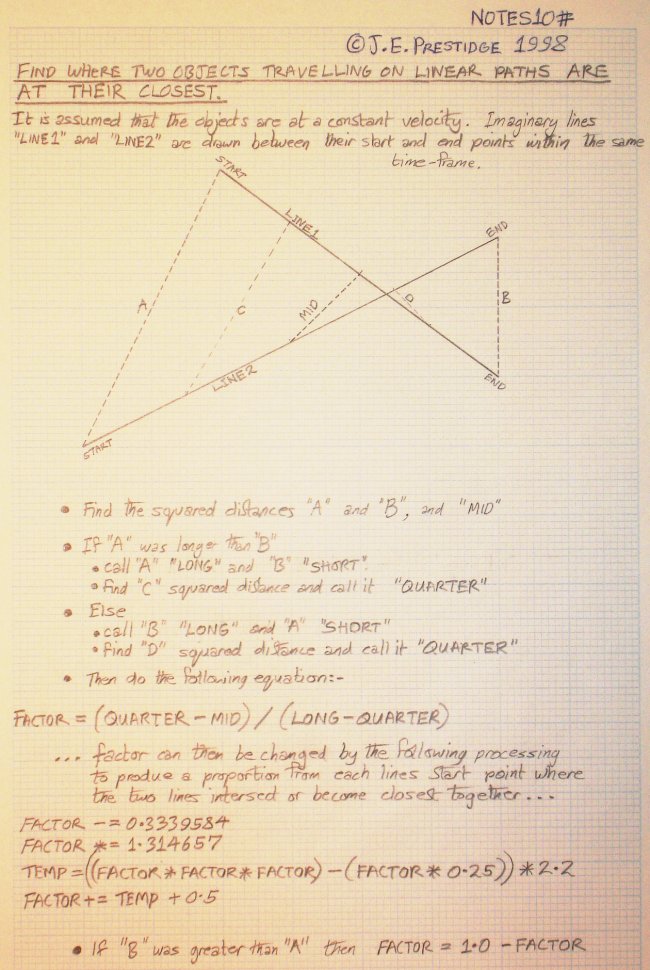 NOTES10#
© J.E. PRESTIDGE 1998
FIND WHERE TWO OBJECTS TRAVELLING ON LINEAR PATHS ARE
AT THEIR CLOSEST.
It is assumed that the objects are at a constant velocity. Imaginary lines
"LINE1" and "LINE2" are drawn between their start and end points within the same
time-frame.
START
LINE1
END
A
C
MID
D
B
LINE2
END
START
• Find the squared distances "A" and "B", and "MID"
• If "A" was longer than "B"
• call "A" "LONG" and "B" "SHORT".
• find "C" squared distance and call it "QUARTER"
• Else
• call "B" "LONG" and "A" "SHORT"
• find "D" squared distance and call it "QUARTER"
• Then do the following equation:-
FACTOR = (QUARTER - MID) / (LONG - QUARTER)
... factor can then be changed by the following processing
to produe a proportion from each lines start point where
the two lines intersed or become closest together...
FACTOR -= 0.3339584
FACTOR *= 1.314657
TEMP = ((FACTOR * FACTOR * FACTOR) - (FACTOR * 0.25)) * 2.2
FACTOR += TEMP + 0.5
• If "B" was greater than "A" then FACTOR = 1.0 - FACTOR